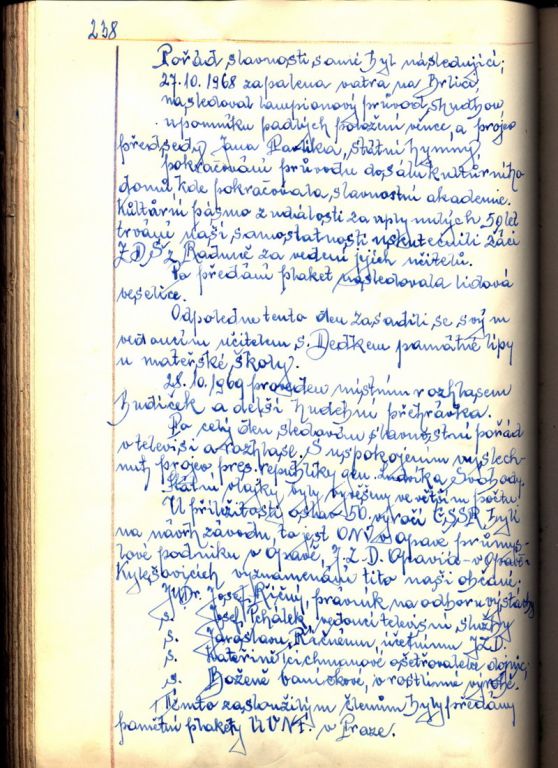 238
Pořad slavnosti sami byl následující;
27.10.1968 zapalena vatra na Brlid
následoval lampionový průvod, s hudbou
u pomníku padlých položení věnce, a projev
předsedy Jana Pavlíka, státní hymny,
pokračování průvodu do sálu kultůrního
domu kde pokračovala, slavnostní akademie.
Kůltůrní pásmo z událostí za uplynulých 50 let
trvání naší samostatnosti uskutečnili žáci
ZDŠ z Raduně za vedení jejich učitelů.
Po předání plaket následovala lidová
veselice.
Odpoledne tento den zasadili se svým
vedoucím učitelem s. Dedkem památné lípy
u mateřské školy.
28.10.1969 proveden místním rozhlasem
budíček a delší hudební přehrávka.
Po celý den sledovaním slavnostní pořad
v televisi a rozhlase. S uspokojením vyslech-
nutý projev pres. republiky gen. Ludvíka Svobody.
Státní vlajky byly vyvěšeny ve větším počtu.
U příležitosti oslav 50. výročí ČSSR byli
na návrh závodu, to jest ONV v Opavě průmys-
lové podniku v Opavě, J.Z.D. Opavia - v Opavě-
Kylešovicích vyznamenáni tito naši občané:
JUDr. Josef Řičný, právník na odboru výstavby
s. Josef Pchálek, vedoucí televisní služby
s. Jaroslavu Řičnému, účetnímu JZD.
s. Kateřině ošetřovatelce dojnic,
s. Boženě v rostlinné výrobě.
Těmto zasloužilým členům byly předány
pamětní plakety ÚVNF. v Praze.